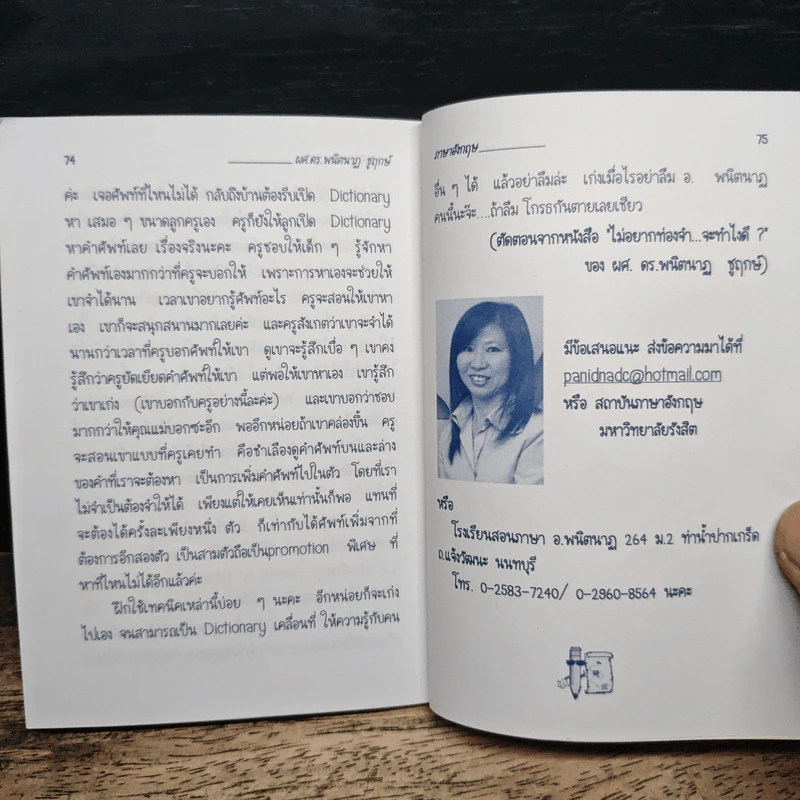 74
ผศ.ดร.พนิตนาฏ ชูฤกษ์
ค่ะ เจอศัพท์ที่ไหนไม่ได้ กลับถึงบ้านต้องรีบเปิด Dictionary
หา เสมอ ๆ ขนาดลูกครูเอง ครูก็ยังให้ลูกเปิด Dictionary
หาคำศัพท์เลย เรื่องจริงนะคะ ครูชอบให้เด็ก ๆ รู้จักหา
คำศัพท์เองมากกว่าที่ครูจะบอกให้ เพราะการหาเองจะช่วยให้
เขาจำได้นาน เวลาเขาอยากรู้ศัพท์อะไร ครูจะสอนให้เขาหา
เอง เขาก็จะสนุกสนานมากเลยค่ะ และครูสังเกตว่าเขาจะจำได้
นานกว่าเวลาที่ครูบอกศัพท์ให้เขา ดูเขาจะรู้สึกเบื่อ ๆ เขาคง
รู้สึกว่าครูยัดเยียดคำศัพท์ให้เขา แต่พอให้เขาหาเอง เขารู้สึก
ว่าเขาเก่ง (เขาบอกกับครูอย่างนี้ละค่ะ) และเขาบอกว่าชอบ
มากกว่าให้คุณแม่บอกซะอีก พออีกหน่อยถ้าเขาคล่องขึ้น ครู
จะสอนเขาแบบที่ครูเคยทำ คือชำเลืองดูคำศัพท์บนและล่าง
ของคำที่เราจะต้องหา เป็นการเพิ่มคำศัพท์ไปในตัว โดยที่เรา
ไม่จำเป็นต้องจำให้ได้ เพียงแต่ให้เคยเห็นเท่านั้นก็พอ แทนที่
จะต้องได้ครั้งละเพียงหนึ่ง ตัว ก็เท่ากับได้ศัพท์เพิ่มจากที่
ต้องการอีกสองตัว เป็นสามตัวถือเป็นpromotion พิเศษ ที่
หาที่ไหนไม่ได้อีกแล้วค่ะ
ฝึกใช้เทคนิคเหล่านี้บ่อย ๆ นะคะ อีกหน่อยก็จะเก่ง
ไปเอง จนสามารถเป็น Dictionary เคลื่อนที่ ให้ความรู้กับคน
ภาษาอังกฤษ
75
อื่น ๆ ได้ แล้วอย่าลืมล่ะ เก่งเมื่อไรอย่าลืม อ. พนิตนาฏ
คนนี้นะจ๊ะ....ถ้าลืม โกรธกันตายเลยเชียว
(ตัดตอนจากหนังสือ "ไม่อยากท่องจำ...จะทำไงดี ?"
ของ ผศ. ดร.พนิตนาฏ ชูฤกษ์)
มีข้อเสนอแนะ ส่งข้อความมาได้ที่
panidnadc@hotmail.com
หรือ สถาบันภาษาอังกฤษ
มหาวิทยาลัยรังสิต
หรือ
โรงเรียนสอนภาษา อ.พนิตนาฏ 264 ม.2 ท่าน้ำปากเกร็ด
ถ.แจ้งวัฒนะ นนทบุรี
โทร. 0-2583-7240/ 0-2960-8564 นะคะ